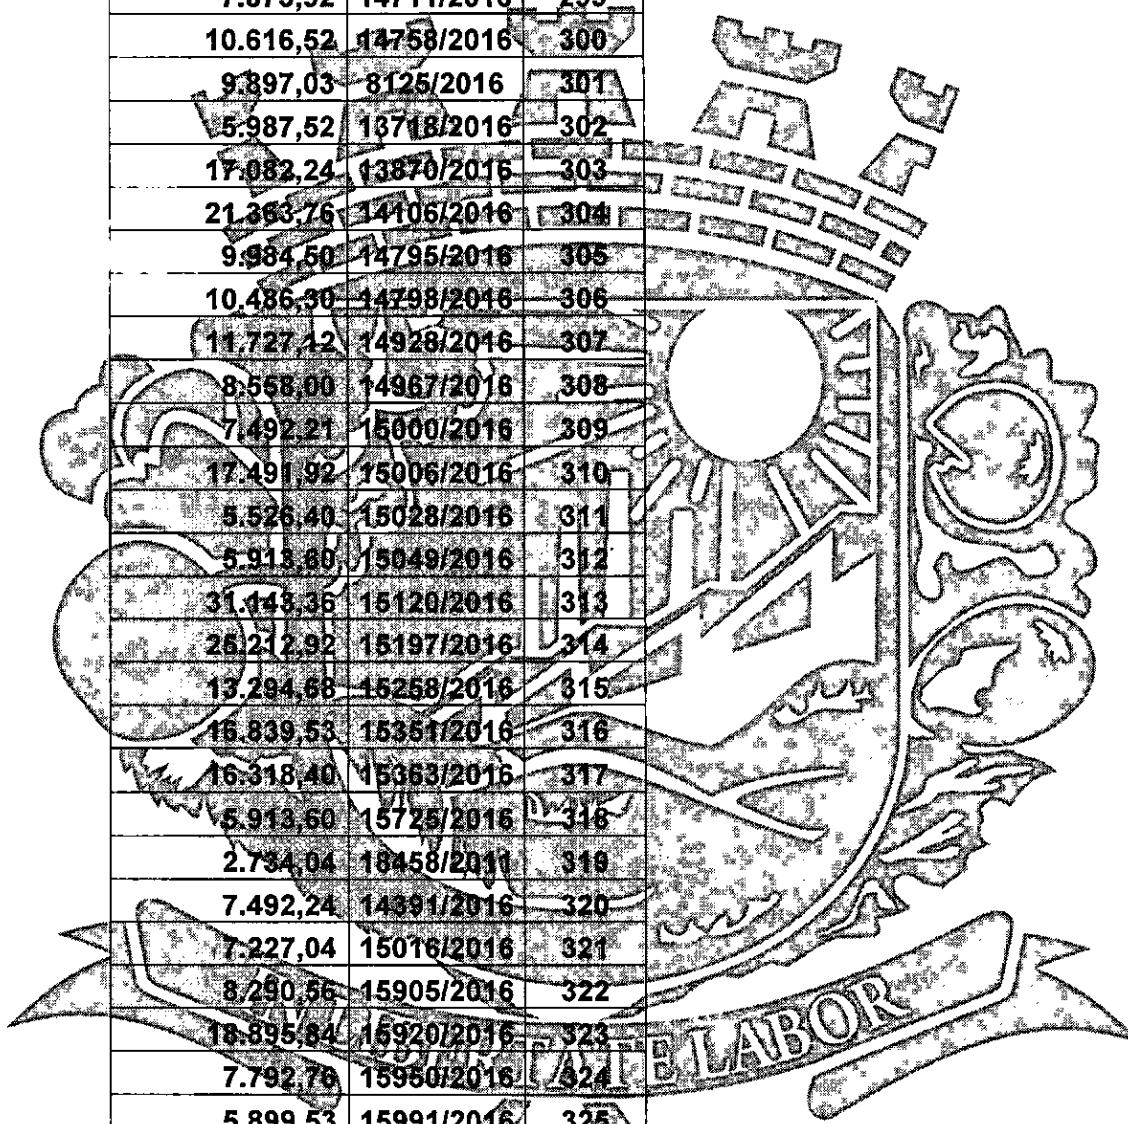 7.875,92 14711/2016 299
10.616,52 14758/2016 300
9.897,03 8125/2016 301
5.987,52 13718/2016 302
17.082,24 13870/2016 303
21.363,76 14106/2016 304
9.984,50 14795/2016 305
10.486,30 14798/2016 306
11.727,12 14928/2016 307
8.558,00 14967/2016 308
7.492,21 15000/2016 309
17.491,92 15006/2016 310
5.526,40 15028/2016 311
5.913,60 15049/2016 312
31.143,36 15120/2016 313
25.212,92 15197/2016 314
13.294,68 15258/2016 315
16.839,53 15351/2016 316
16.318,40 15363/2016 317
5.913,60 15725/2016 318
2.734,04 18458/2011 319
7.492,24 14391/2016 320
7.227,04 15016/2016 321
8.290,56 15905/2016 322
18.895,84 15920/2016 323
7.792,76 15950/2016 324
5.899,53 15991/2016 325
LABOR